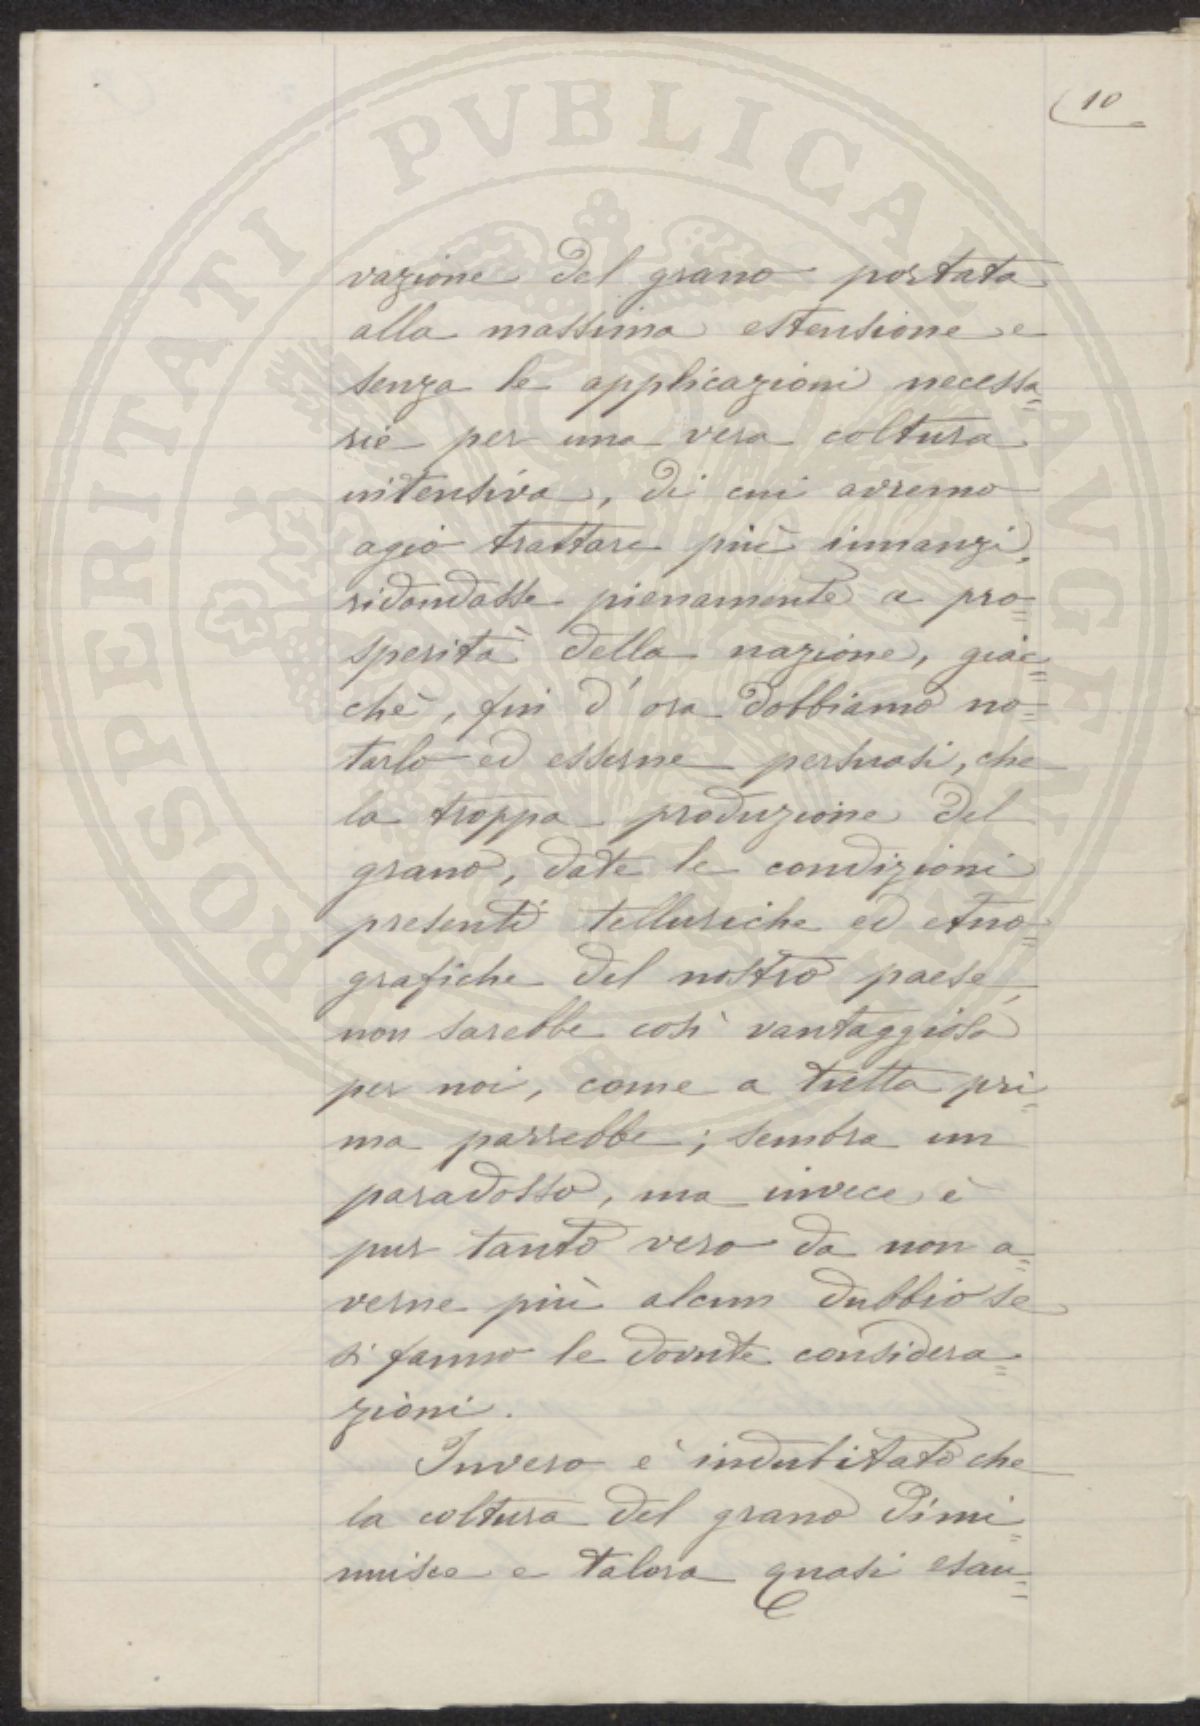 10
vazione del grano portata
alla massima estensione e
senza le applicazioni necessa=
rie per una vera coltura
intensiva, di cui avremo
agio trattare più innanzi,
ridondasse pienamente a pro=
sperità della nazione, giac=
chè, fin d'ora dobbiamo no=
tarlo ed esserne persuasi, che
la troppa produzione del
grano, date le condizioni
presenti telluriche ed etno=
grafiche del nostro paese,
non sarebbe così vantaggiosa
per noi, come a tutta pri=
ma parrebbe; sembra un
paradosso, ma invece è
pur tanto vero da non a=
verne più alcun dubbio se
si fanno le dovute considera=
zioni.
Invero è indubitato che
la coltura del grano dimi=
nuisce e talora quasi esau=
PROSPERITATI PVBLICAE AVGENDAE